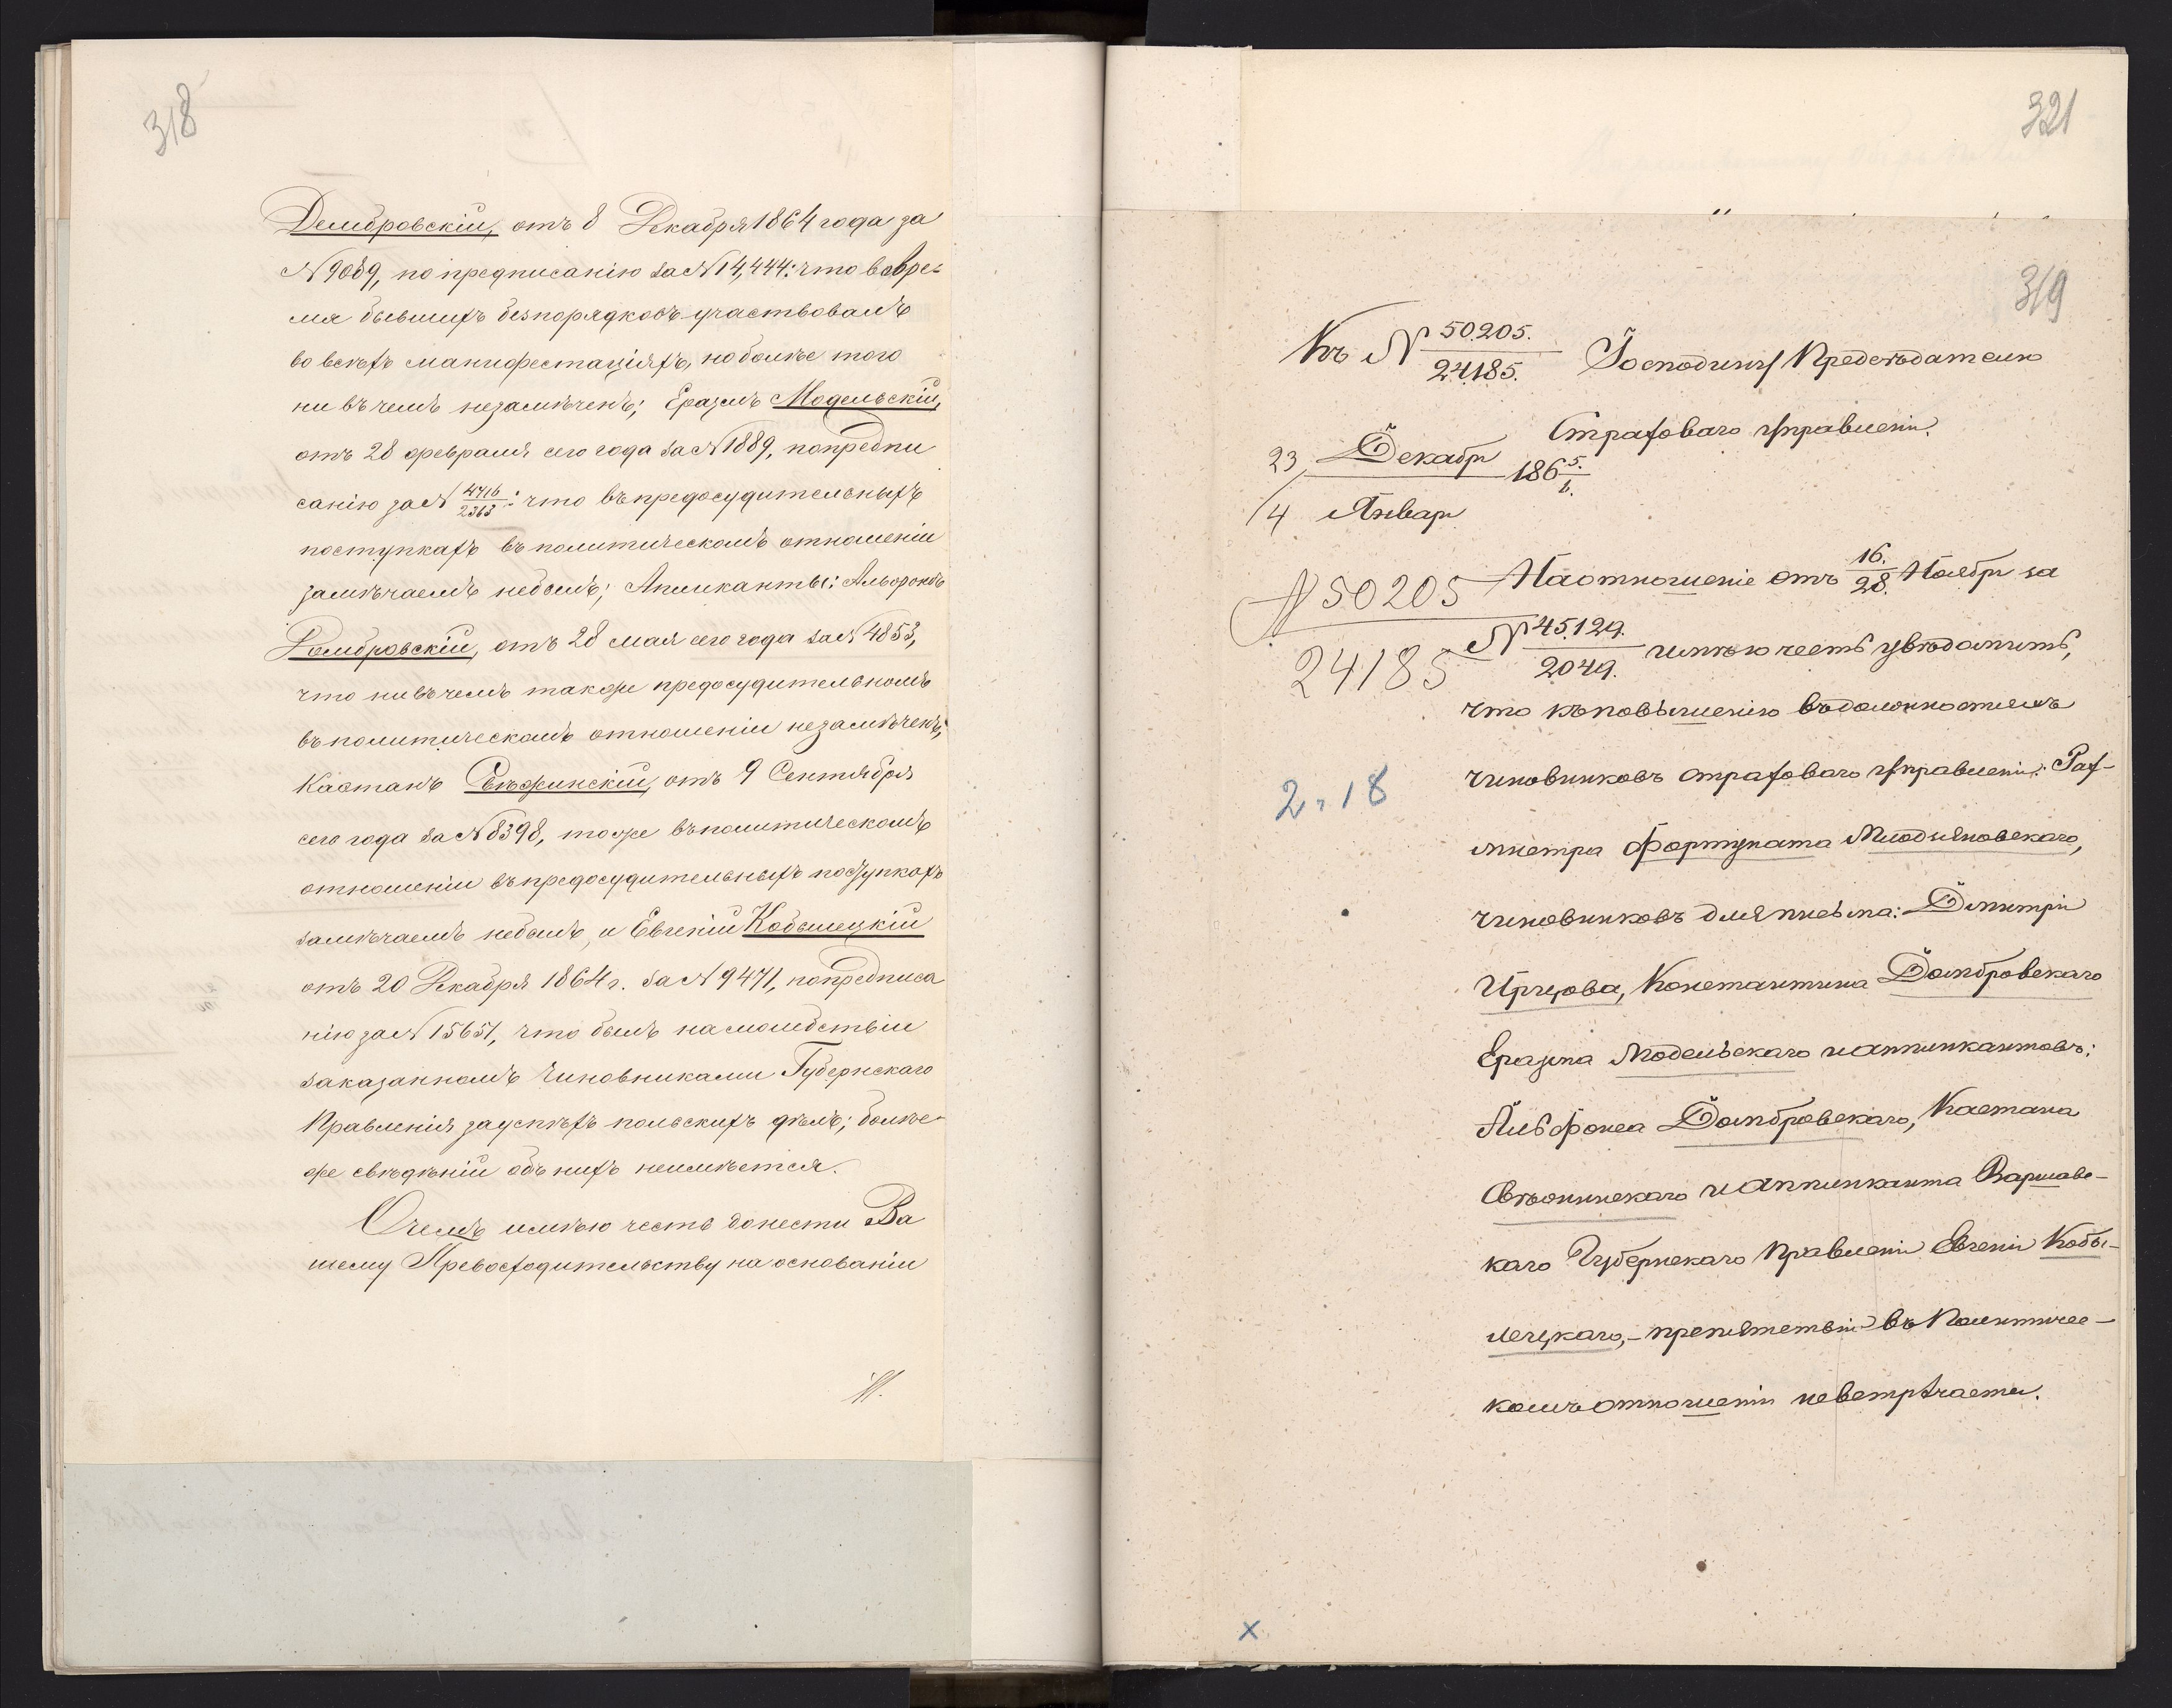 318
Дембровскій, отъ 8 Декабря 1864 года за
N 9089, по предписанію за N 14,444: что вовре-
мя бывшихъ безпорядковъ участвовалъ
во всѣхъ манифестаціяхъ, но болѣе того
ни въ чемъ незамѣченъ; Еразмъ Модельскій,
отъ 28 февраля сего года за N 1889, попредпи
санію за N 4416/2363: что въ предосудительныхъ
поступкахъ въ политическомъ отношеніи
замѣчаемъ небылъ; Апликанты: Альфонсъ
Домбровскій, отъ 28 мая сего года за N 4853,
что ни въ чемъ также предосудительномъ
въ политическомъ отношеніи незамѣченъ;
Каэтанъ Свѣжинскій, отъ 9 Сентября
сего года за N 8398, тоже въ политическомъ
отношеніи въ предосудительныхъ поступкахъ
замѣчаемъ небылъ, и Евгеній Кобылецкій
отъ 20 Декабря 1864 г. за N 9471, попредписа
нію за N 15651, что былъ на молебствіи
заказанномъ Чиновниками Губернскаго
Правленія за успѣхъ польскихъ дѣлъ; болѣе-
же свѣдѣній объ нихъ неимѣется.
Очемъ имѣю честь донести Ва
шему Превосходительству на основаніи
321
319
Къ N 50.205./24185.
Господину Предсѣдателю
Страховаго Управленія.
23 Декабря/4 Января 1865./6.
N 50205
24185
На отношеніе отъ 16./28. Ноября за
N 45.129./2049. имѣю честь увѣдомить,
что къ повышенію въ должностяхъ
2. 18
чиновниковъ страховаго Управленія: Рах-
мистра Фортуната Млодзяновскаго,
чиновниковъ для письма: Дмитрія
Ирчова, Константина Домбровскаго
Еразма Модельскаго и аппликантовъ:
Альфонса Домбровскаго, Каетана
Свѣжинскаго и аппликанта Варшавс-
каго Губернскаго Правленія Евгенія Кобы-
лецкаго,- препятствія въ Политичес-
комъ отношеніи невстрѣчается.
x